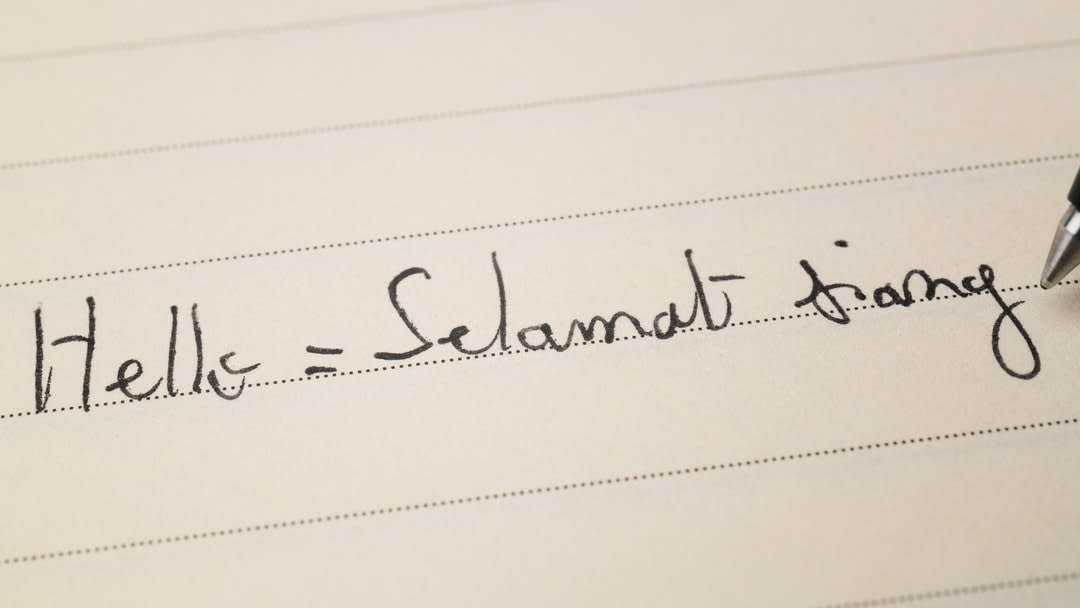 Hello = Selamat siang